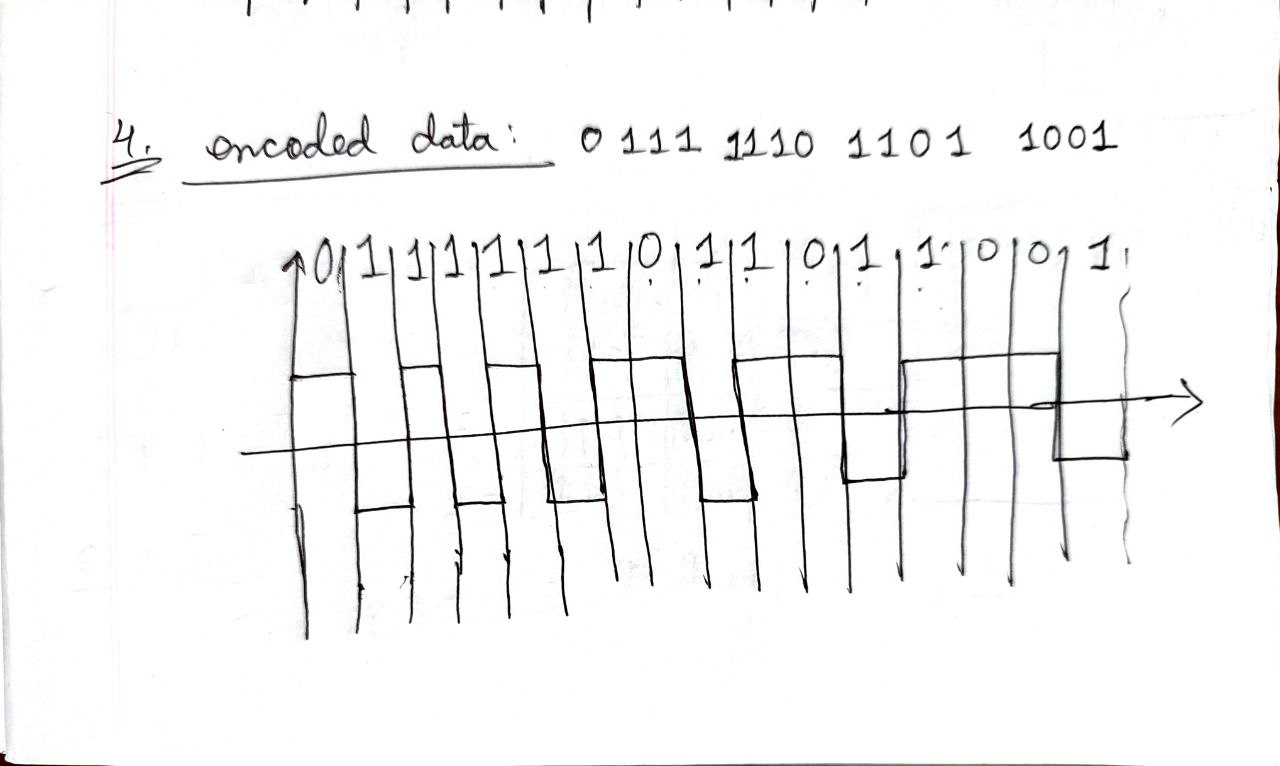 4. encoded data: 0 111 1110 1101 1001
0 1 1 1 1 1 1 0 1 1 0 1 1 0 0 1